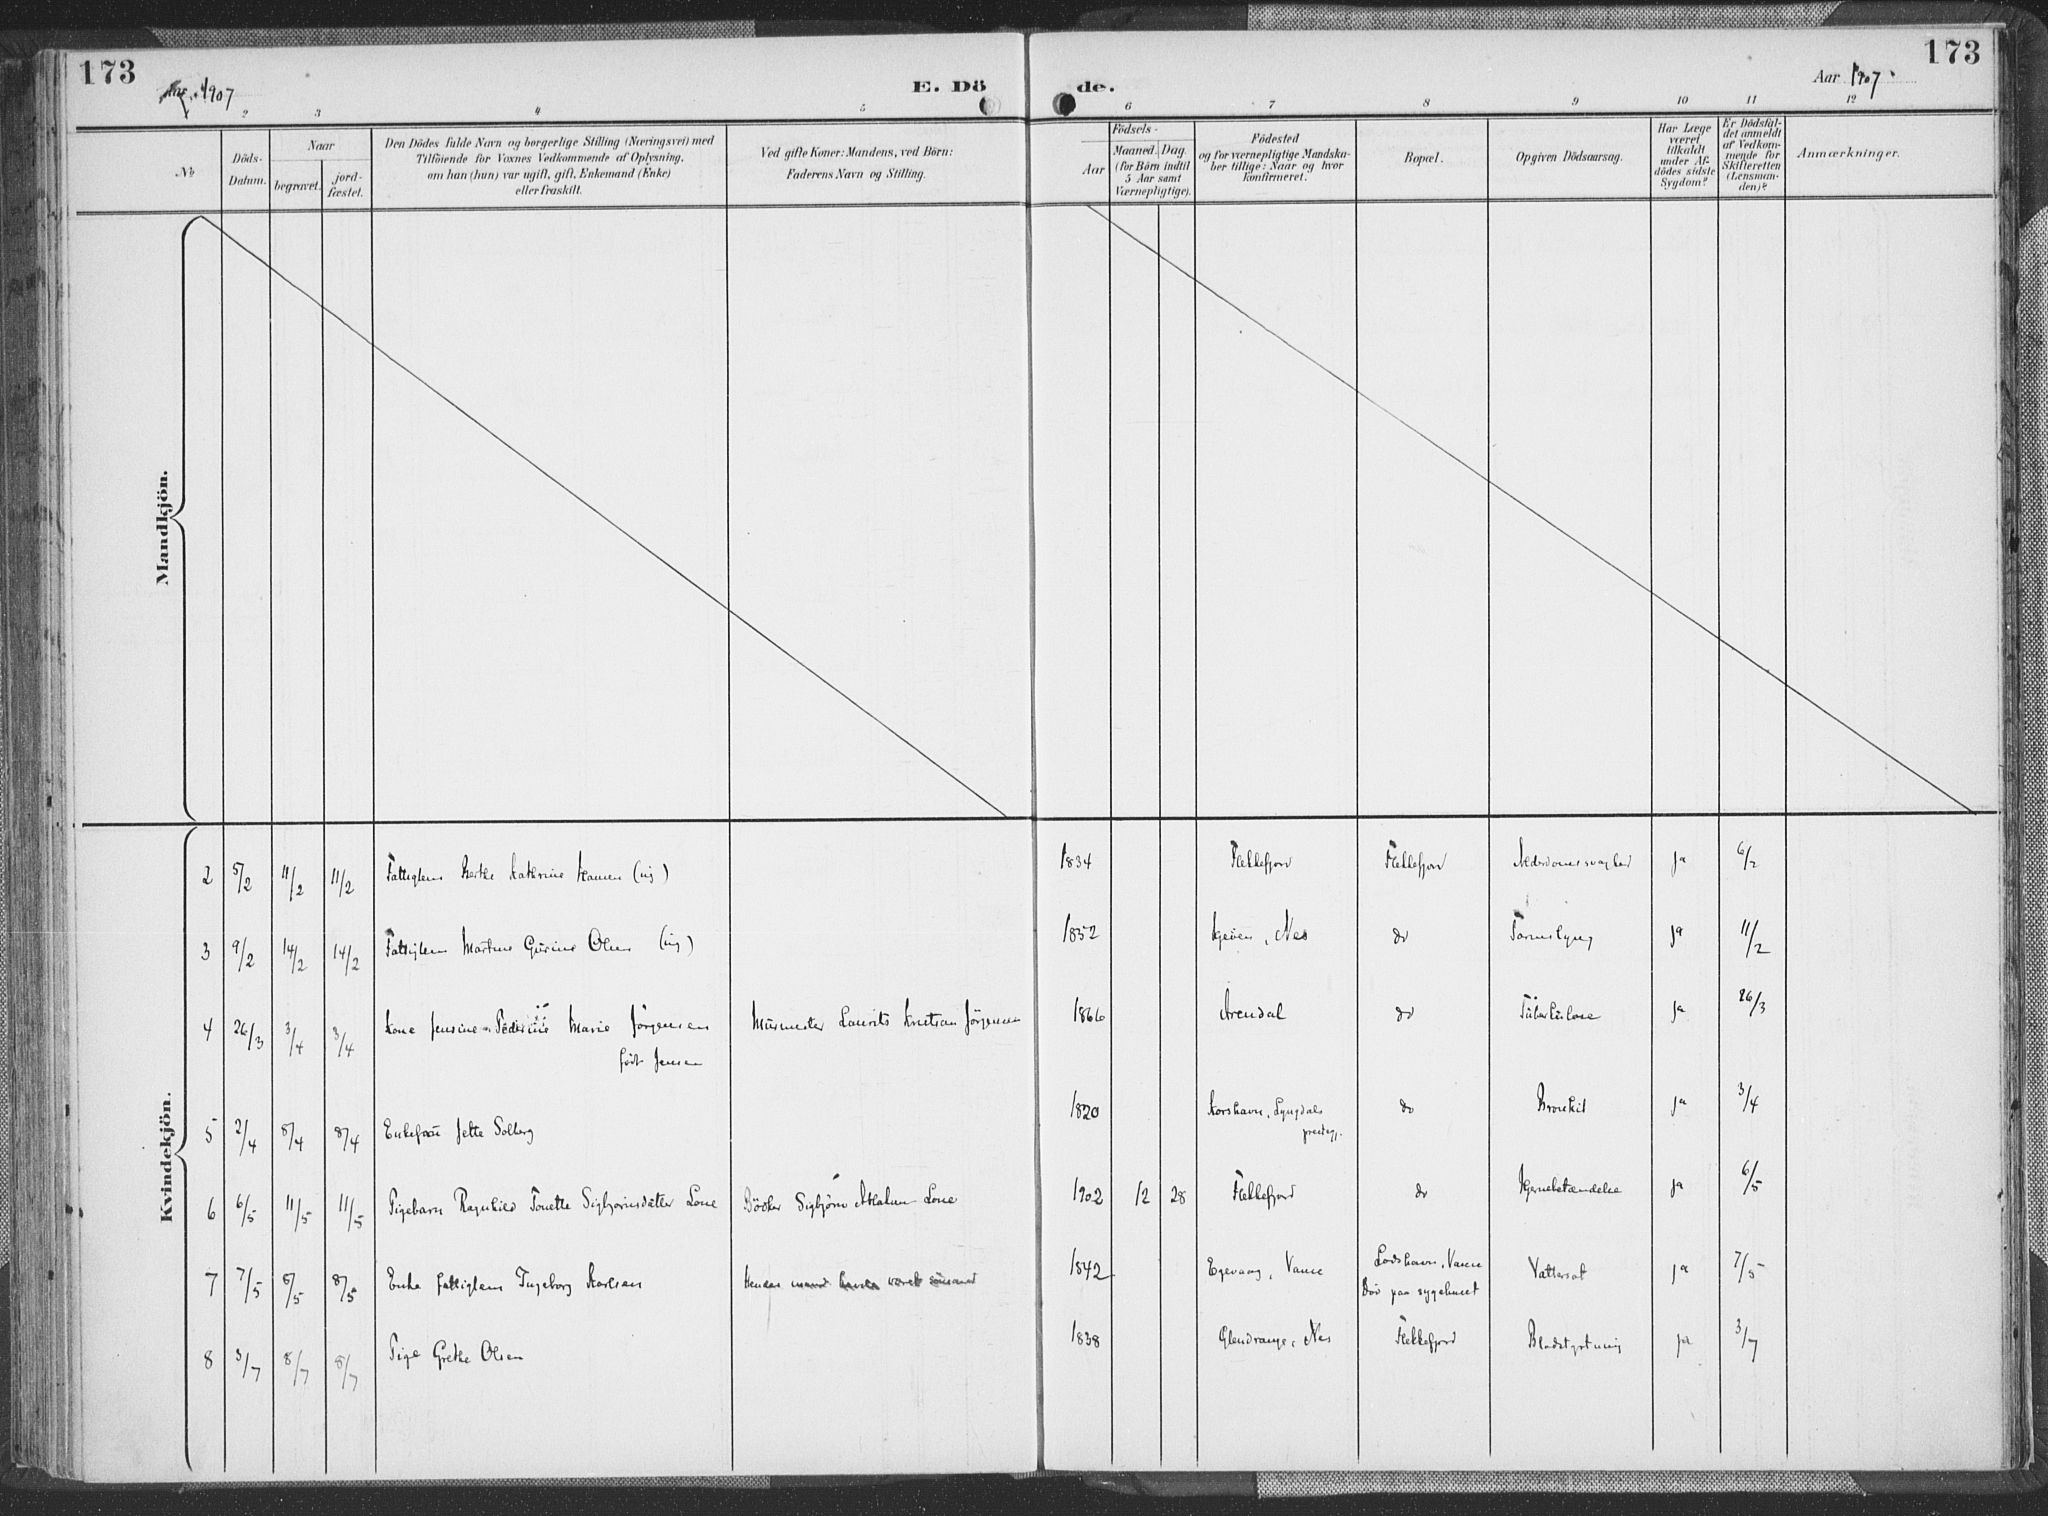 173
Aar 1907
E. Dö
de.
Aar 1907.
173
1 2 3 4 5 6 7 8 9 10 11 12
No
Döds-
Datum.
Naar
begravet.
jord-
fæstet.
Den Dödes fulde Navn og borgerlige Stilling (Næringsvei) med
Tilföiende for Voxnes Vedkommende af Oplysning,
om han (hun) var ugift, gift, Enkemand (Enke)
eller fraskilt.
Ved gifte Koner: Mandens, ved Börn:
Faderens Navn og Stilling.
Födsels-
Aar
Maaned. Dag.
(for Börn indtil
5 Aar samt
Værnepligtige).
Födested
og for værnepligtige Mandska-
ber tillige: Naar og hvor
konfirmeret.
Bopæl.
Opgiven Dödsaarsag.
Har Læge
været
tilkaldt
under Af-
dödes sidste
Sygdom?
Er Dödsfal-
det anmeldt
af Vedkom-
mende for
Skifteretten
(Lensman-
den)?
Anmærkninger.
Mandkjön.
Kvindekjön.
2 5/2 11/2 11/2 Fattiglem Berthe Kathrine Hansen (ug) 1834 Flekkefjord Flekkefjord Alderdomssvaghed ja 6/2
3 9/2 14/2 14/2 Fattiglem Martine Gurine Olsen (ug) 1852 Nes do ja 11/2
4 26/3 3/4 3/4 Kone Jensine Marie Jörgensen Murmester Laurits Kristian Jörgensen 1866 Arendal do Tuberkulose ja 26/3
födt Jensen
5 2/4 8/4 8/4 Enkefrú Jette Solberg 1820 Korshavn, Lyngdals do Bronkit ja 3/4
prestegj.
6 6/5 11/5 11/5 Pigebarn Ragnhild Tonette Sigbjörnsdatter Lone Bödker Sigbjörn Lone 1902 12 28 Flekkefjord do Hjernebetændelse ja 6/5
7 7/5 8/5 8/5 Enke fattiglem Ingeborg Karlsen Hendes mand havde været sömand 1842 Egevaag, Vanse Lodshavn, Vanse Vattersot ja 7/5
Död paa sygehuset
8 3/7 8/7 8/7 Pige Grethe Olsen 1838 Glendrange, Nes Flekkefjord Blodstyrtning ja 3/7